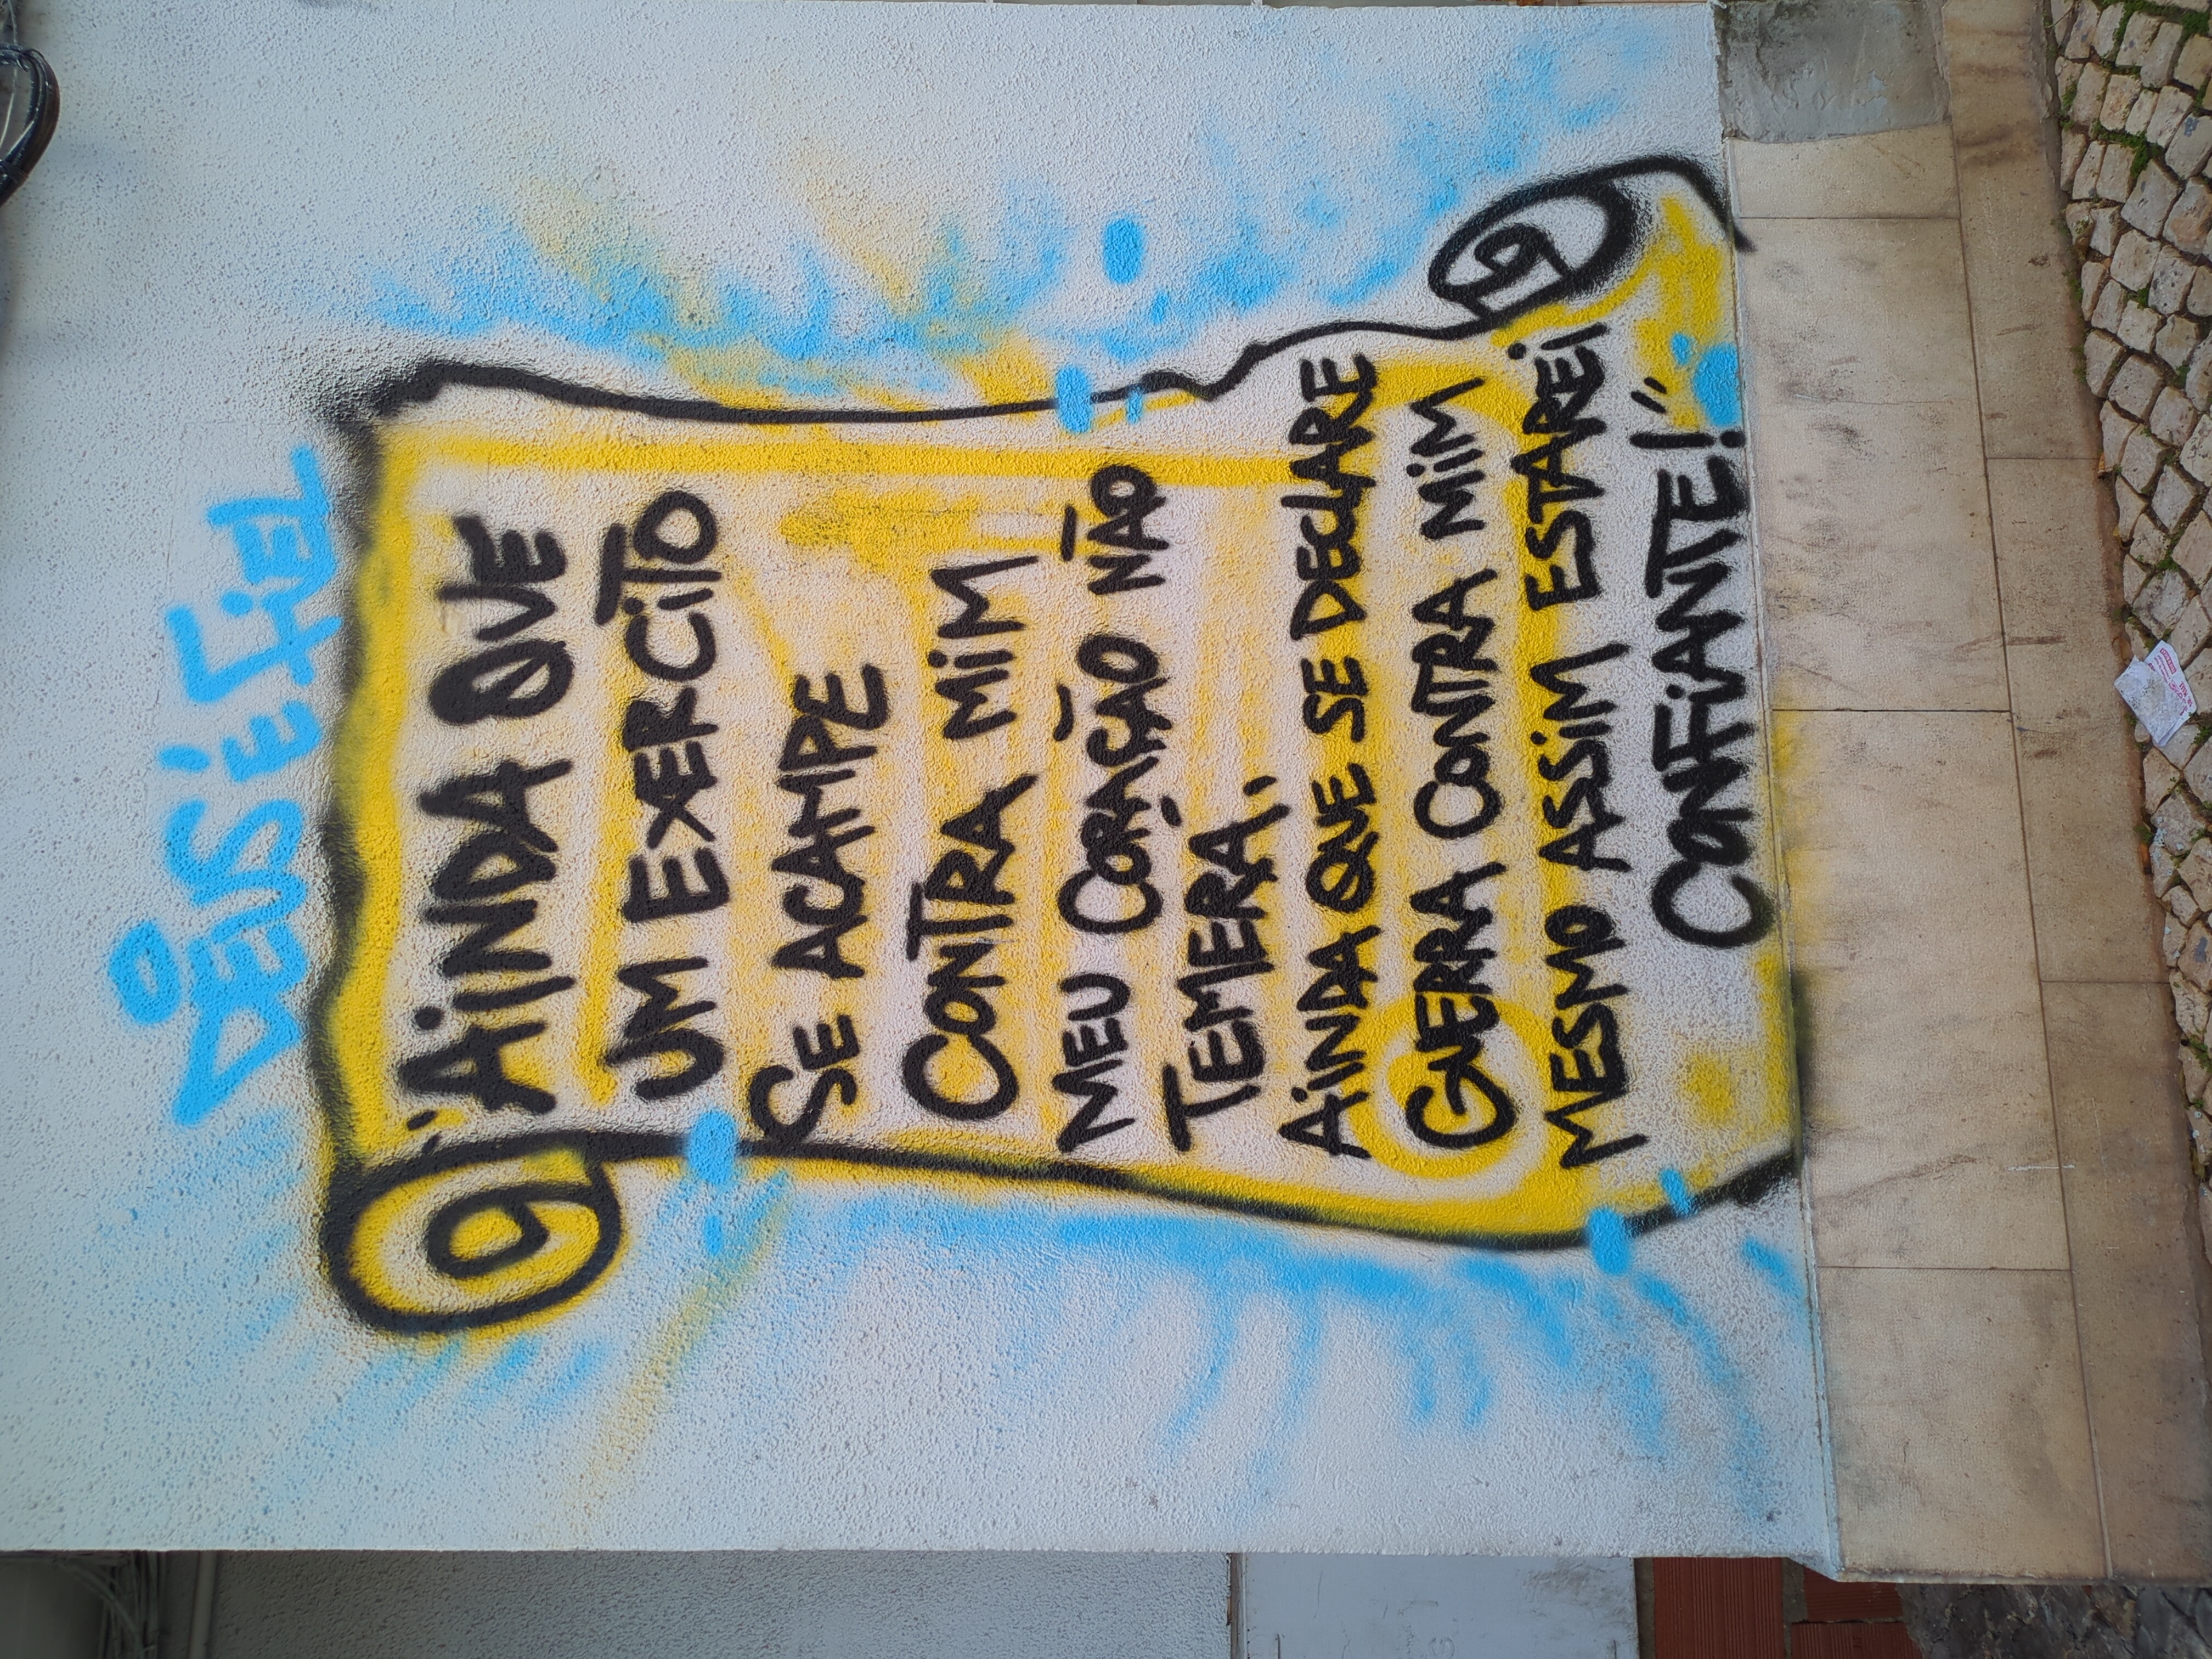 Ô DEUS É FIEL
"AINDA QUE
UM EXERCITO
SE ACAMPE
CONTRA MIM
MEU CORAÇÃO NÃO
TEMERÁ,
AINDA QUE SE DECLARE
GUERRA CONTRA MIM
MESMO ASSIM ESTAREI
CONFIANTE!"